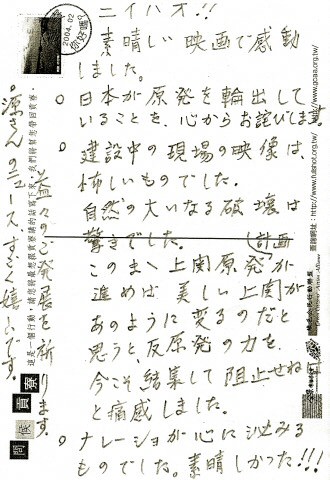 ニイハオ!!
素晴しい映画で感動
しました。
○日本が原発を輸出して
いることを、心からお詫びします。
○建設中の現場の映像は、
怖しいものでした。
自然の大いなる破壊は
驚きでした。(計画
このまゝ上関原発が
進めば美しい上関が
あのように変るのだと
思うと、反原発の力を
今こそ結集して阻止せねば
と痛感しました。
○ナレーションが心に沁みる
ものでした。素晴しかった!!!
益々のご発展を祈ります。
○源さんのニュース、すごく嬉しいです。
2004.02
你好嗎?
這是一個行動,請您將最想跟貢寮講的話寫下來,我們將幫您帶回貢寮.
問候貢寮
http://www.gcaa.org.tw/